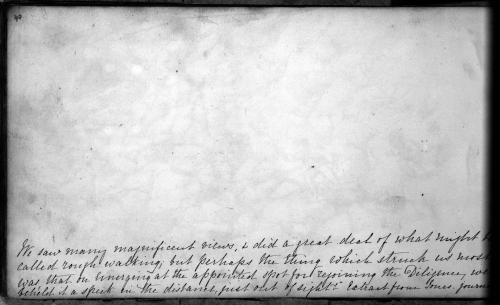 We saw many magnificent views, & did a great deal of what might
called rough walking; but perhaps the thing which struck us most
was, that on emerging at the appointed spot for rejoining the Diligence, we
beheld it a speck in the distance, just out of sight! Extract from Jones journa